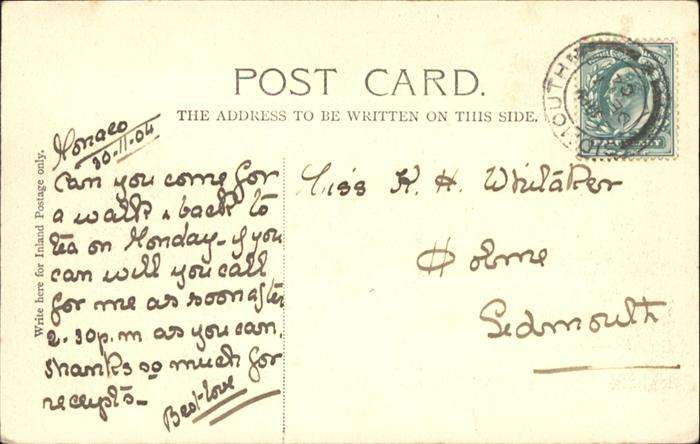 POST CARD.
THE ADDRESS TO BE WRITTEN ON THIS SIDE.
Write here for Inland Postage only.
Monaco
30.11.04
Can you come for
a walk & back to
tea on Monday - if you
can will you call
for me as soon after
2.30p.m as you can.
Thanks so much for
receipts -
Best love
Miss K. H. Whitaker
Holme
Sidmouth
SIDMOUTH